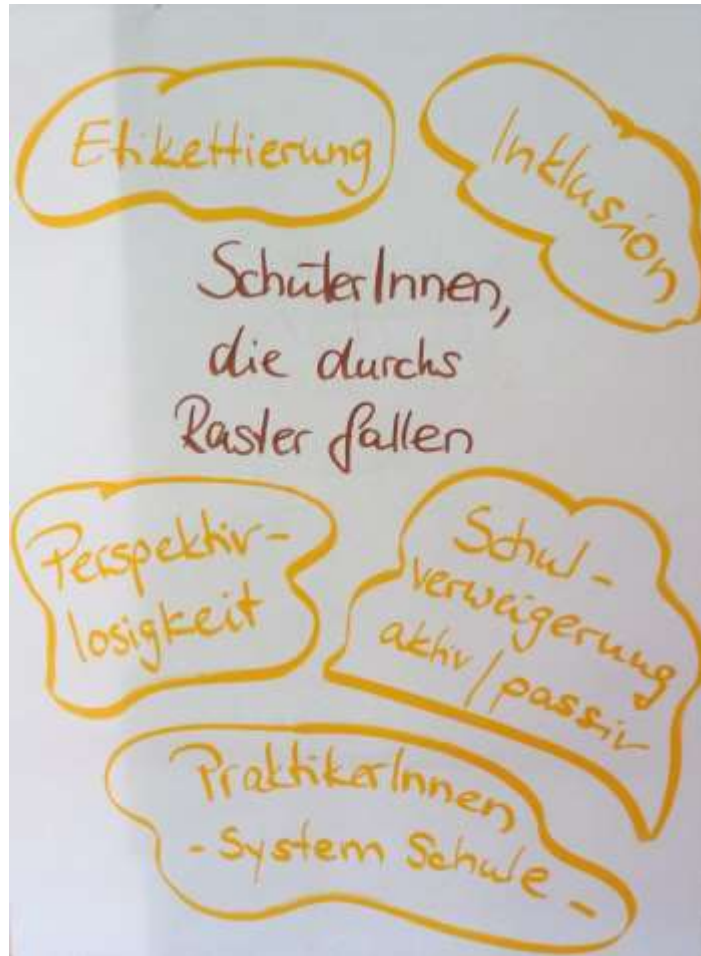 Etikettierung
Inklusion
SchülerInnen,
die durchs
Raster fallen
Perspektiv-
losigkeit
Schul-
verweigerung
aktiv/passiv
PraktikerInnen
- System Schule -